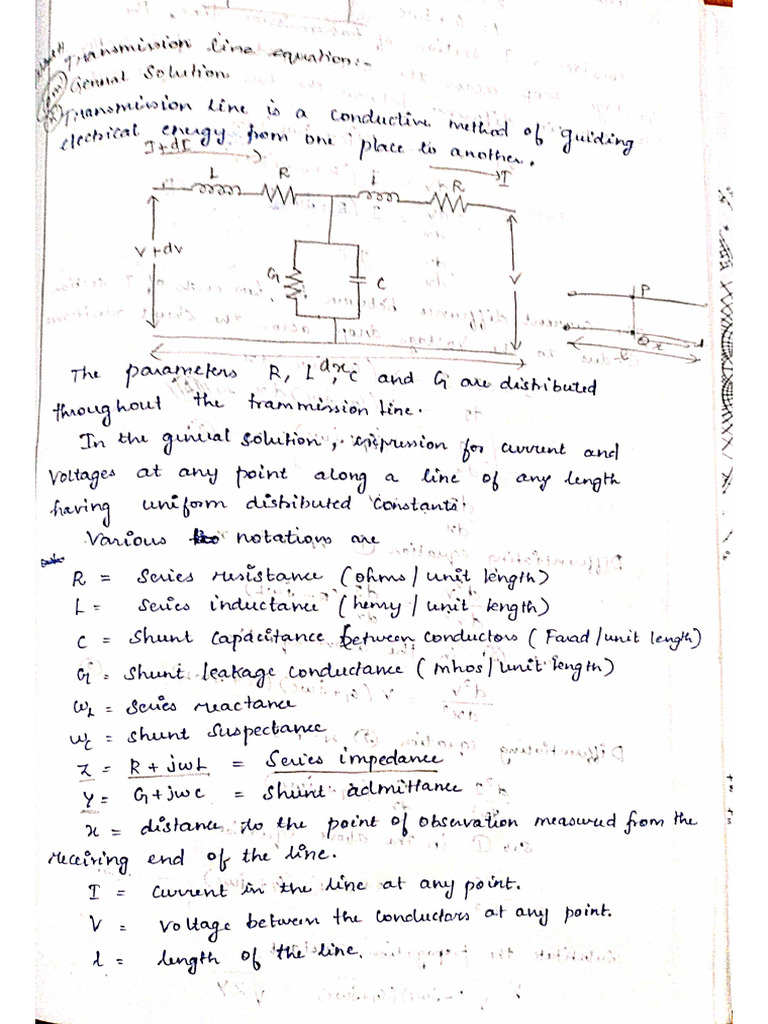 Transmission line equation:-
General Solution
Transmission line is a conductive method of guiding
electrical energy from one place to another.
I+dI
I
L R L R
V+dv G C V
P
Q x
l
dx
The parameters R, L, C and G are distributed
throughout the tranmmission line.
In the general solution, expression for current and
voltages at any point along a line of any length
having uniform distributed constants
Various notations are
R = Series resistance (ohms/unit length)
L = Series inductance (henry/unit length)
C = Shunt capacitance between conductors (Farad/unit length)
G = Shunt leakage conductance (mhos/unit length)
ωL = Series reactance
ωC = Shunt Suspectance
Z = R+jωL = Series impedance
Y = G+jωc = Shunt admittance
x = distance to the point of observation measured from the
receiving end of the line.
I = current in the line at any point.
V = voltage between the conductors at any point.
l = length of the line.